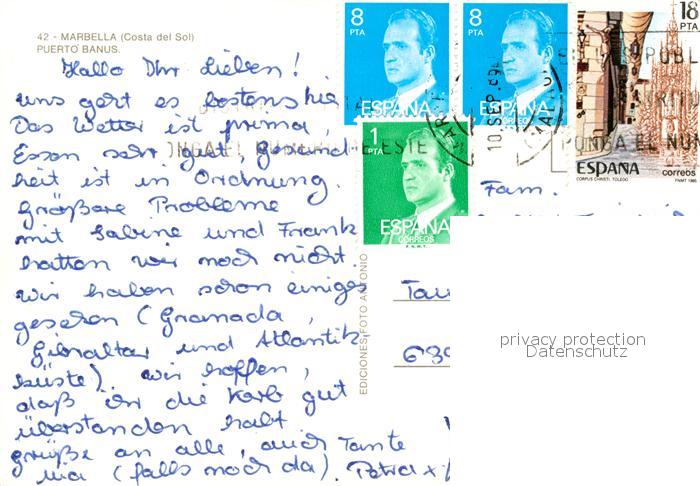 42 - MARBELLA (Costa del Sol)
PUERTO BANUS.
Hallo Ihr Lieben!
uns geht es bestens hier
Das Wetter ist prima,
Essen sehr gut, Gesund-
heit ist in Ordnung.
Größere Probleme
mit Sabine und Frank
hatten wir noch nicht.
wir haben schon einiges
gesehen (Granada,
Gibraltar und Atlantik-
küste). wir hoffen,
daß ihr die Kerb gut
überstanden habt
grüße an alle, auch Tante
Mia (falls noch da). Petra +
EDICIONES FOTO ANTONIO
8
PTA
ESPAÑA
8
PTA
ESPAÑA
18
PTA
ESPAÑA
correos
CORPUS CHRISTI. TOLEDO
FNMT 1985
1
PTA
ESPAÑA
CORREOS
F.N.M.T.
10 SEP
PONGA EL NUM
Fam.
Tau
639
privacy protection
Datenschutz